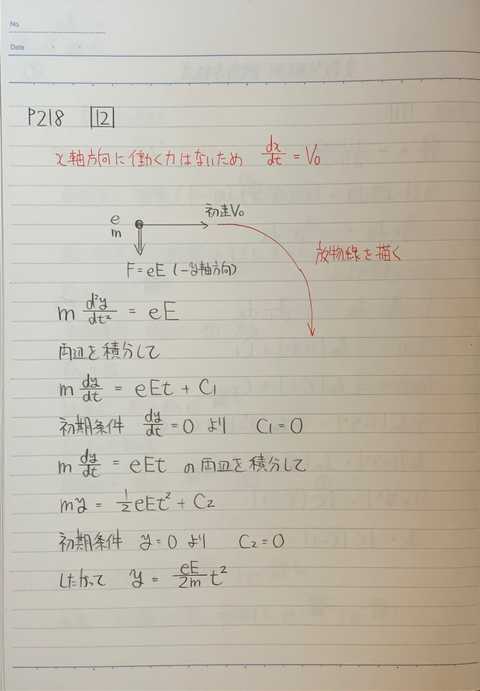 No.
Date
P218 12
x軸方向に働く力はないため dx/dt = V₀
e
m
初速V₀
F=eE (-y軸方向)
放物線を描く
m d²y/dt² = eE
両辺を積分して
m dy/dt = eEt + C₁
初期条件 dy/dt = 0 より C₁=0
m dy/dt = eEt の両辺を積分して
my = 1/2 eEt² + C₂
初期条件 y=0 より C₂=0
したがって y = eE/2m t²